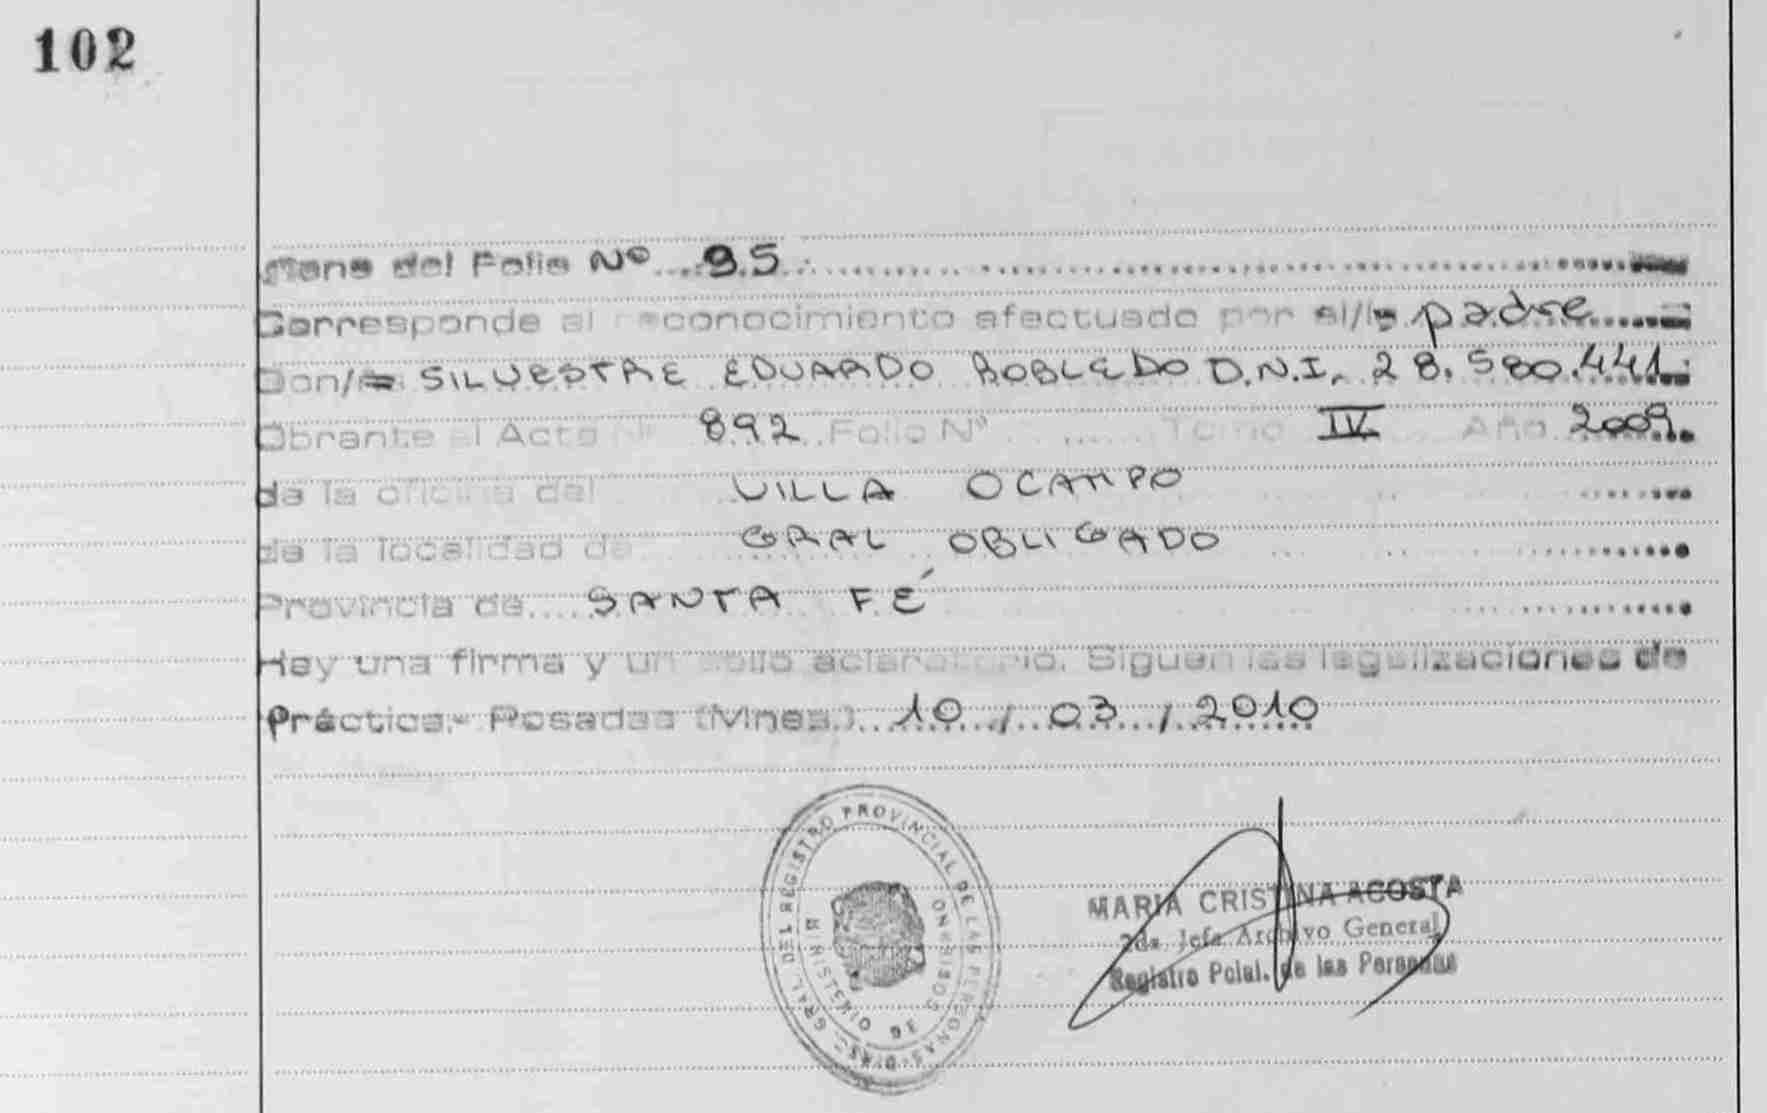 102
Viene del Folio Nº 95
Corresponde al reconocimiento efectuado por el/la padre
Don/ SILVESTRE EDUARDO ROBLEDO D.N.I. 28.580.441
Obrante al Acta Nº 892 Folio Nº Tomo IV Año 2009.
de la oficina del VILLA OCAMPO
de la localidad de GRAL OBLIGADO
Provincia de SANTA FÉ
Hay una firma y un sello aclaratorio. Siguen las legalizaciones de
Práctica.- Posadas (Mnes.) 10 / 03 / 2010
GRAL. DEL REGISTRO PROVINCIAL DE LAS PERSONAS
MINISTERIO DE GOBIERNO
MARIA CRISTINA ACOSTA
2da. Jefa Archivo General
Registro Pcial. de las Personas